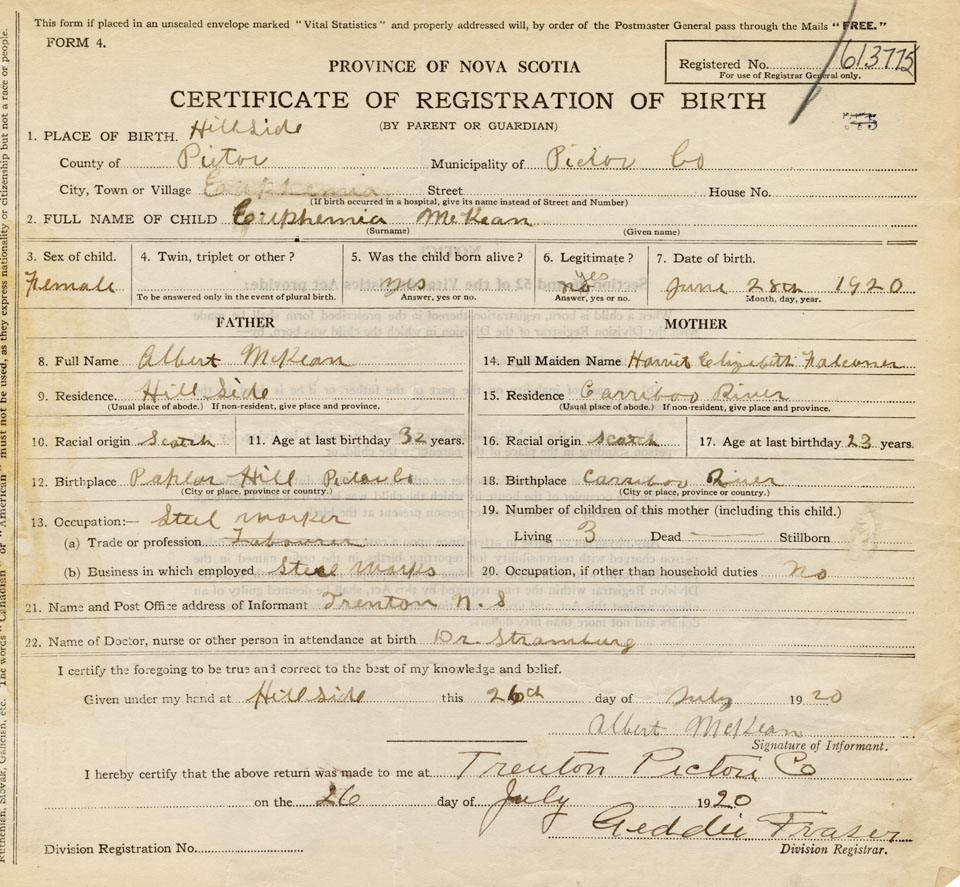 This form if placed in an unsealed envelope marked "Vital Statistics" and properly addressed will, by order of the Postmaster General pass through the Mails "FREE."
FORM 4.
Registered No. 613775
For use of Registrar General only.
PROVINCE OF NOVA SCOTIA
CERTIFICATE OF REGISTRATION OF BIRTH
(BY PARENT OR GUARDIAN)
1. PLACE OF BIRTH. Hillside
County of Pictou Municipality of Pictou Co
City, Town or Village Euphemia Street House No.
(If birth occurred in a hospital, give its name instead of Street and Number)
2. FULL NAME OF CHILD Euphemia McKean
(Surname) (Given name)
3. Sex of child. 4. Twin, triplet or other? 5. Was the child born alive? 6. Legitimate? 7. Date of birth.
Female yes no yes June 28th 1920
To be answered only in the event of plural birth. Answer, yes or no. Answer, yes or no. Month, day, year.
FATHER MOTHER
8. Full Name Albert McKean 14. Full Maiden Name Harriet Elizabeth Falconer
9. Residence. Hill Side 15. Residence Carriboo River
(Usual place of abode.) If non-resident, give place and province. (Usual place of abode.) If non-resident, give place and province.
10. Racial origin Scotch 11. Age at last birthday 32 years. 16. Racial origin Scotch 17. Age at last birthday 23 years.
12. Birthplace Hill Pictou Co 18. Birthplace Carriboo River
(City or place, province or country.) (City or place, province or country.)
13. Occupation:— Steel worker 19. Number of children of this mother (including this child.)
(a) Trade or profession Labourer Living 3 Dead — Stillborn
(b) Business in which employed Steel works 20. Occupation, if other than household duties No
21. Name and Post Office address of Informant Trenton N.S
22. Name of Doctor, nurse or other person in attendance at birth Dr.
I certify the foregoing to be true and correct to the best of my knowledge and belief.
Given under my hand at Hillside this 26th day of July 1920
Albert McKean
Signature of Informant.
I hereby certify that the above return was made to me at Trenton Pictou Co
on the 26 day of July 1920
Geddie Fraser
Division Registrar.
Division Registration No.